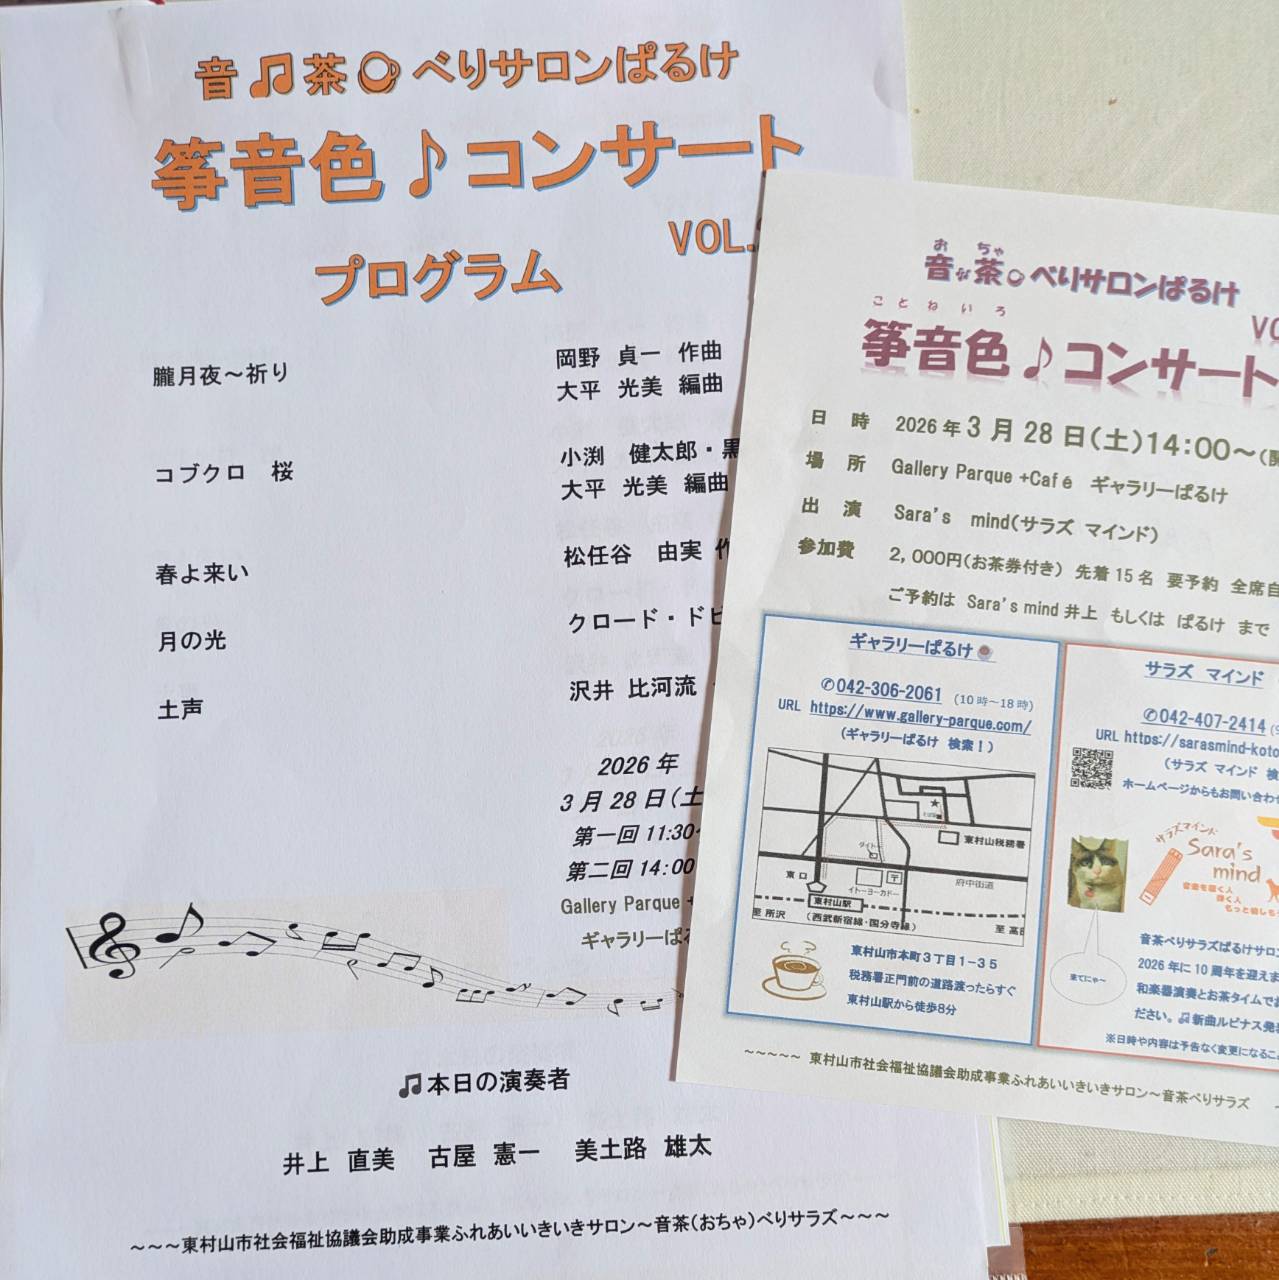 音♫茶 べりサロンぱるけ
箏音色♪コンサート
VOL.
プログラム
朧月夜～祈り
岡野 貞一 作曲
大平 光美 編曲
コブクロ 桜
小渕 健太郎・黒
大平 光美 編曲
春よ来い
松任谷 由実 作
月の光
クロード・ドビ
土声
沢井 比河流
2026年
3月28日(土
第一回 11:30～
第二回 14:00
Gallery Parque +
ギャラリーぱる
♫本日の演奏者
井上 直美 古屋 憲一 美土路 雄太
～～～東村山市社会福祉協議会助成事業ふれあいいきいきサロン～音茶(おちゃ)べりサラズ～～～
おちゃ
音♫茶 べりサロンぱるけ
ことねいろ
VO
箏音色♪コンサート
日 時 2026年3月28日(土)14:00～(開
場 所 Gallery Parque +Café ギャラリーぱるけ
出 演 Sara's mind(サラズ マインド)
参加費 2,000円(お茶券付き) 先着15名 要予約 全席自
ご予約は Sara's mind 井上 もしくは ぱるけ まで
ギャラリーぱるけ
✆042-306-2061 (10時～18時)
URL https://www.gallery-parque.com/
(ギャラリーぱるけ 検索！)
東村山税務署
ダイトー
東口
イトーヨーカドー
府中街道
東村山駅
至 所沢
(西武新宿線・国分寺線)
至 高田
東村山市本町3丁目1-35
税務署正門前の道路渡ったらすぐ
東村山駅から徒歩8分
サラズ マインド
✆042-407-2414
URL https://sarasmind-koto
(サラズ マインド 検
ホームページからもお問い合わせ
サラズマインド
Sara's
mind
音楽を聴く人
弾く人
もっと愉しも
来てにゃ～
音茶べりサラズぱるけサロン
2026年に10周年を迎えま
和楽器演奏とお茶タイムでお
ださい。♫新曲ルピナス発
※日時や内容は予告なく変更になるこ
～～～～～ 東村山市社会福祉協議会助成事業ふれあいいきいきサロン～音茶べりサラズ